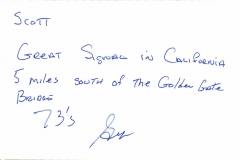 Scott
Great Signal in California
5 miles south of the Golden Gate
Bridge
73's